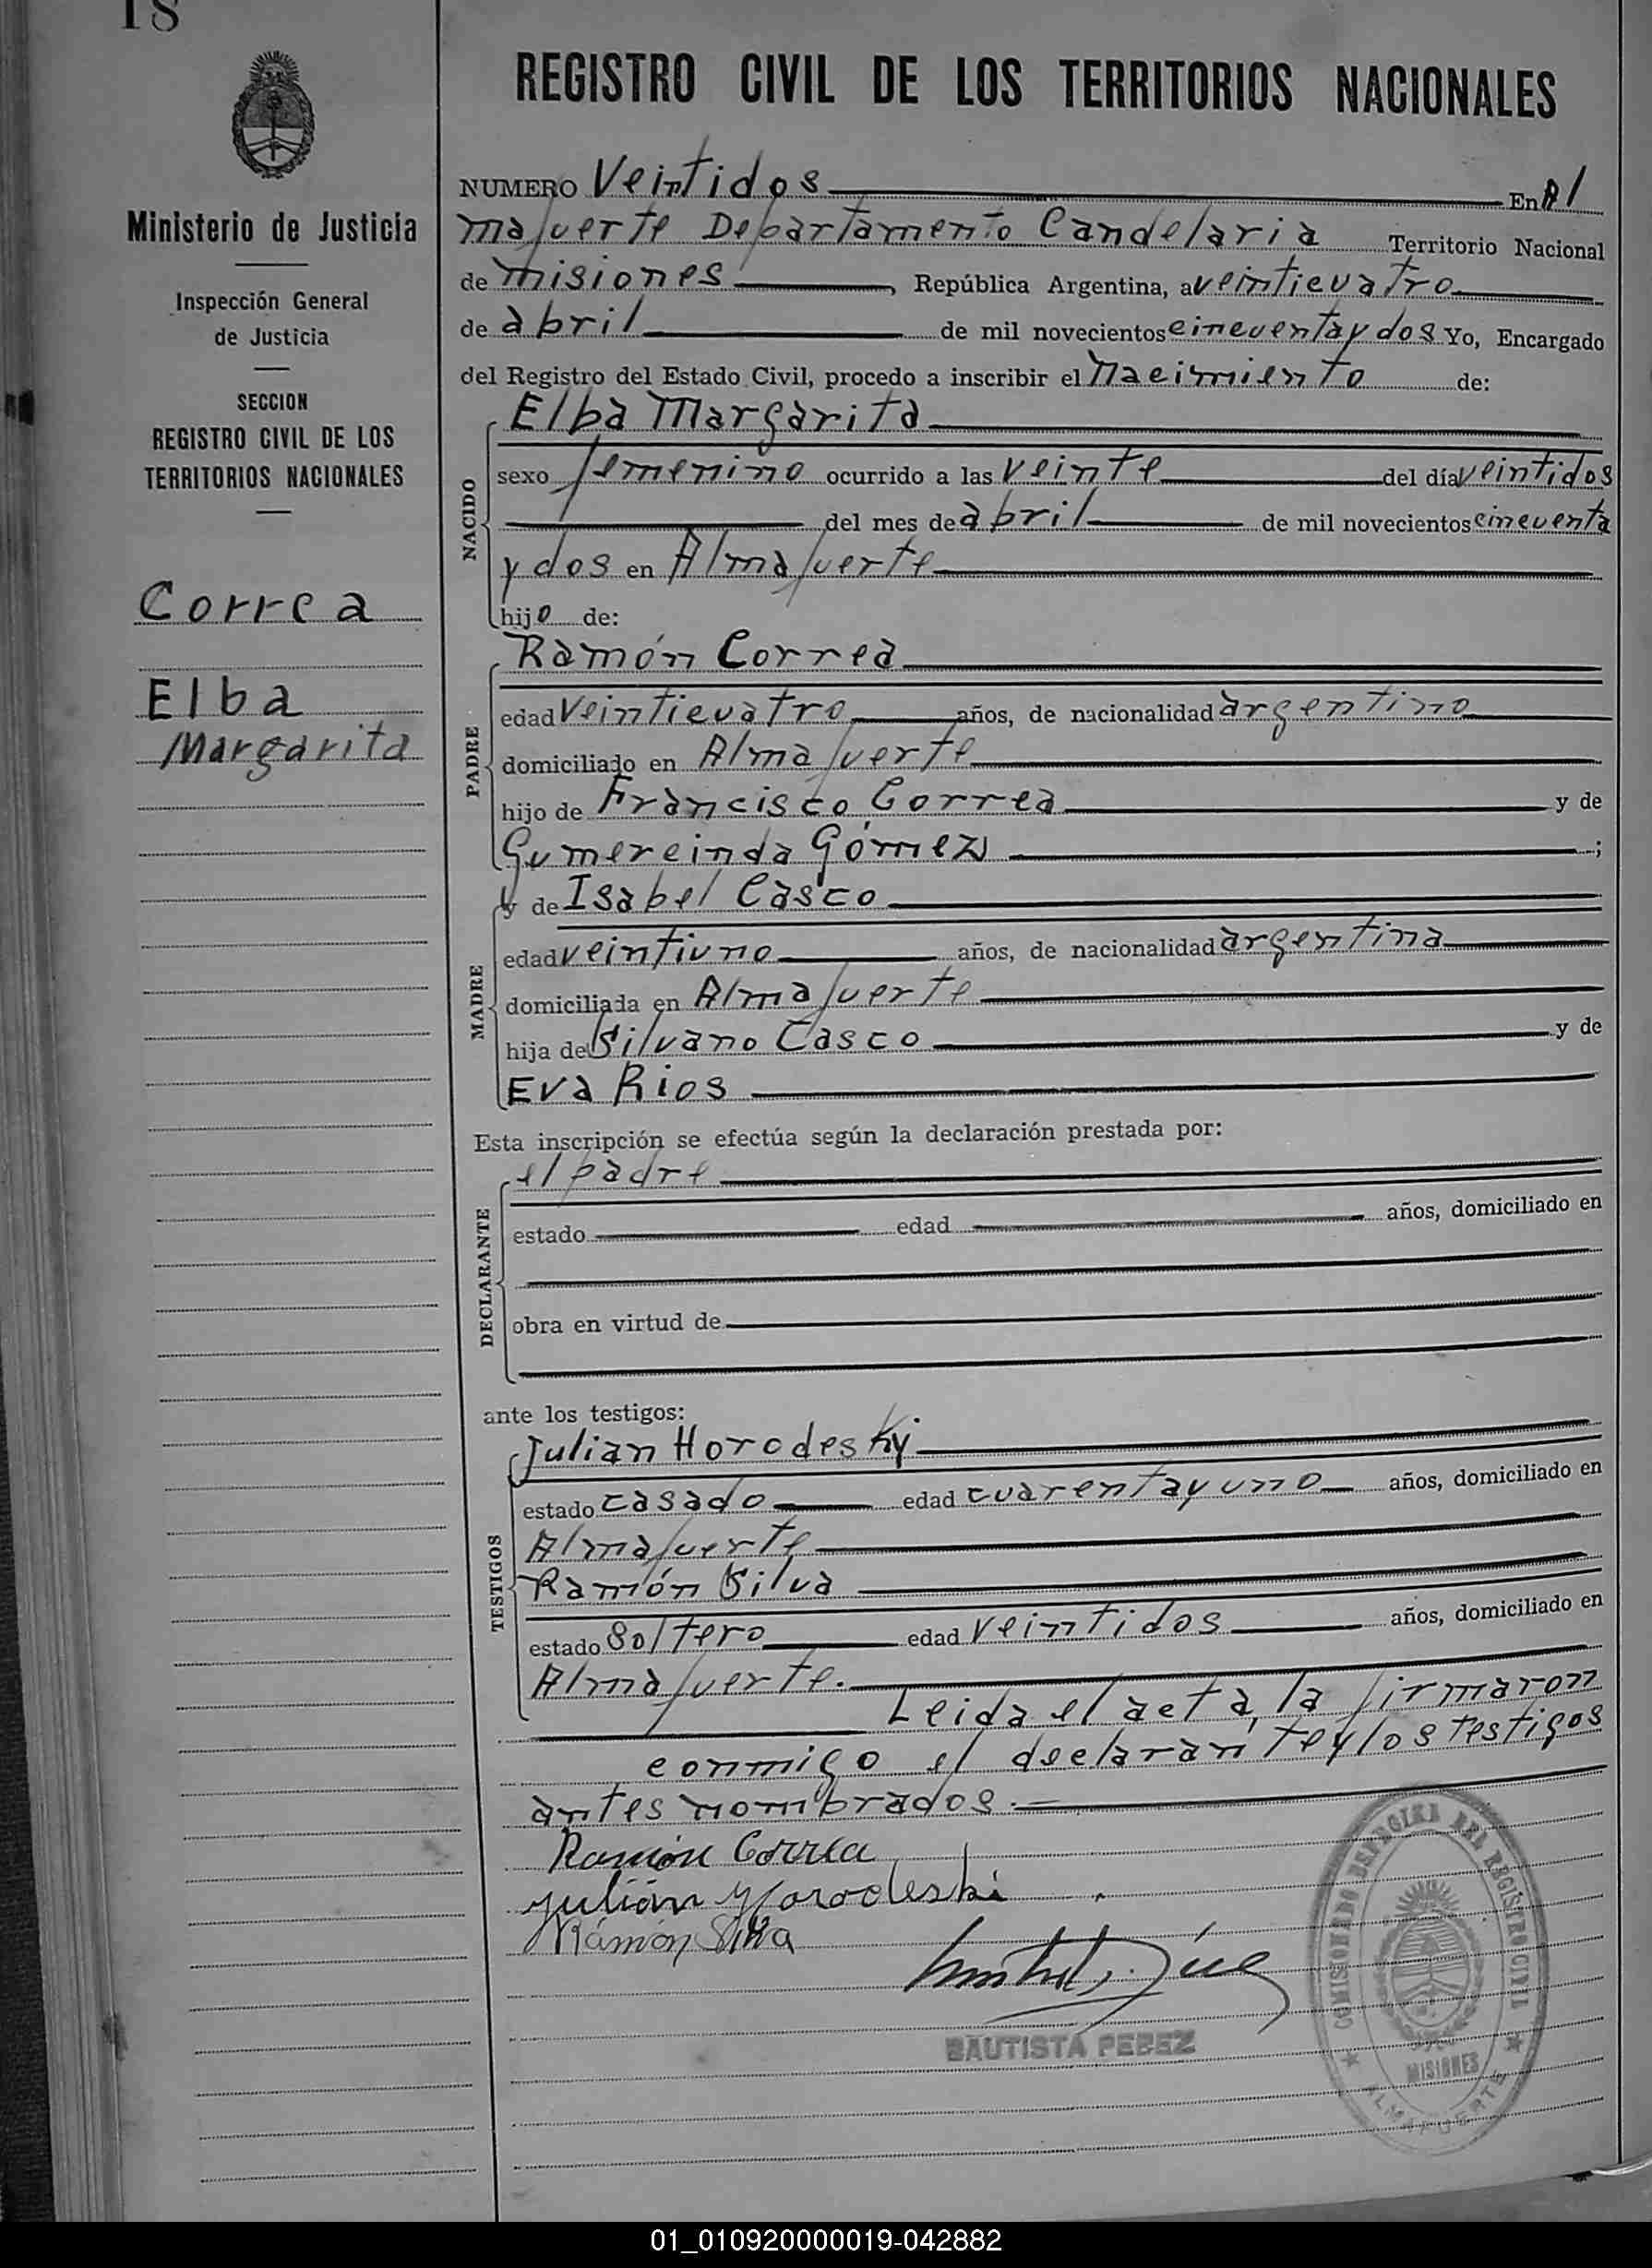 18
Ministerio de Justicia
Inspección General
de Justicia
SECCION
REGISTRO CIVIL DE LOS
TERRITORIOS NACIONALES
Correa
Elba
Margarita
REGISTRO CIVIL DE LOS TERRITORIOS NACIONALES
NUMERO Veintidos En Al
mafuerte Departamento Candelaria Territorio Nacional
de Misiones, República Argentina, a veinticuatro
de abril de mil novecientos cincuenta y dos Yo, Encargado
del Registro del Estado Civil, procedo a inscribir el nacimiento de:
Elba Margarita
NACIDO
sexo femenino ocurrido a las veinte del día veintidos
del mes de abril de mil novecientos cincuenta
y dos en Almafuerte
hijo de:
Ramón Correa
PADRE
edad veinticuatro años, de nacionalidad argentino
domiciliado en Almafuerte
hijo de Francisco Correa y de
Gumercinda Gómez ;
y de Isabel Casco
MADRE
edad veintiuno años, de nacionalidad argentina
domiciliada en Almafuerte
hija de Silvano Casco y de
Eva Rios
Esta inscripción se efectúa según la declaración prestada por:
el padre
DECLARANTE
estado edad años, domiciliado en
obra en virtud de
ante los testigos:
Julian Horodesky
TESTIGOS
estado casado edad cuarenta y uno años, domiciliado en
Almafuerte
Ramón Silva
estado soltero edad veintidos años, domiciliado en
Almafuerte.
Leida el acta, la firmaron
conmigo el declarante y los testigos
antes nombrados.
Ramón Correa
Julián Horodeski
Ramón Silva
BAUTISTA PEREZ
DEL REGISTRO CIVIL
MISIONES
ALMAFUERTE
01_010920000019-042882